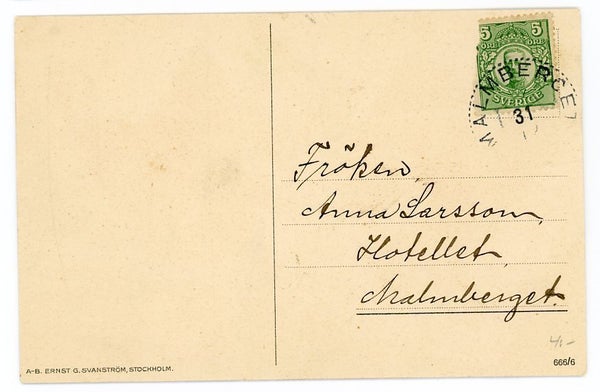 5 5
ÖRE ÖRE
SVERIGE
MALMBERGET
31
Fröken
Anna Larsson,
Hotellet,
Malmberget.
4:-
A-B. ERNST G. SVANSTRÖM, STOCKHOLM.
666/6